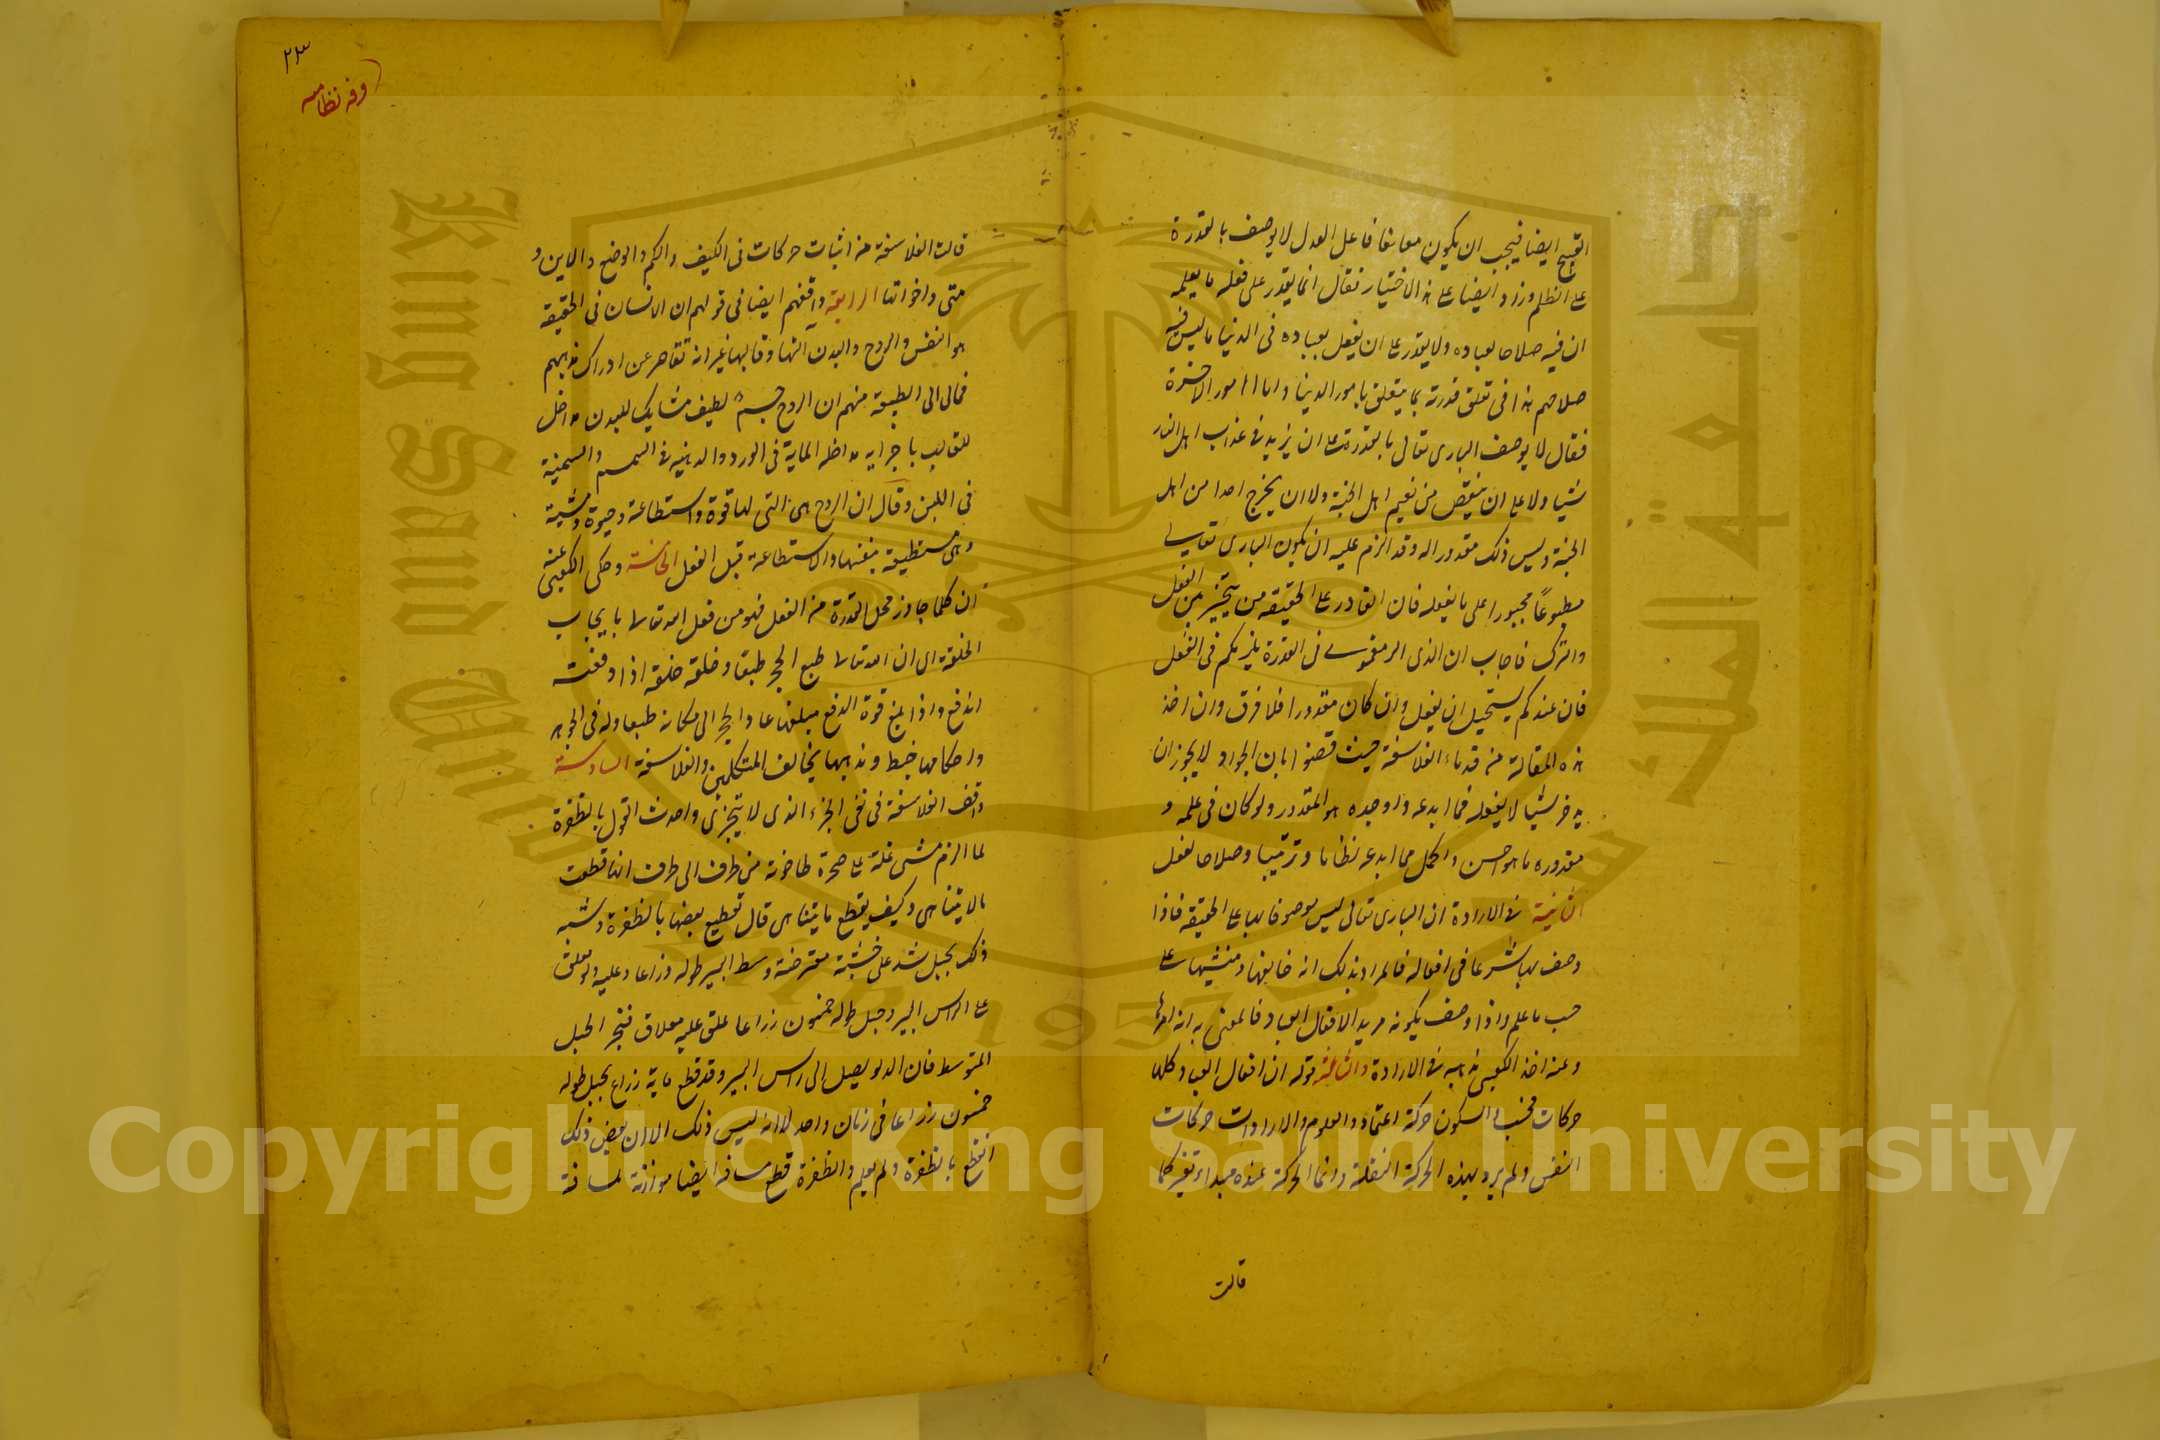 القبح ايضا فيجب ان يكون معانقا فاعل العدل لا يوصف بالقدرة
على الظلم وزاد ايضا على هذا الاختيار فقال انما يقدر على فعله ما يعلمه
ان فيه صلاحا لعباده ولا يقدر على ان يفعل بعباده في الدنيا ما ليس فيه
صلاحهم هذا في تعلق قدرته بما يتعلق بامور الدنيا واما امور الاخرة
فقال لا يوصف الباري تعالى بالقدرة على ان يزيد في عذاب اهل النار
شيا ولا على ان ينقص من نعيم اهل الجنة ولا ان يخرج احدا من اهل
الجنة وليس ذلك مقدورا له وقد الزم عليه ان يكون الباري تعالى
مطبوعا مجبورا على ما يفعله فان القادر على الحقيقة من يتخير بين الفعل
والترك فاجاب ان الذي الزمتموني في القدرة يلزمكم في الفعل
فان عندكم يستحيل ان يفعل وان كان مقدورا فلا فرق وان اخذ
هذه المقالة من قدماء الفلاسفة حيث قضوا بان الجواد لا يجوز ان
يدخر شيا لا يفعله فما ابدعه واوجده هو المقدور ولو كان في علمه و
مقدوره ما هو احسن واكمل مما ابدعه نظاما وترتيبا وصلاحا لفعل
الثانية في الارادة ان الباري تعالى ليس موصوفا بها على الحقيقة فاذا
وصف بها شرعا في افعاله فالمراد بذلك انه خالقها ومنشيها على
حسب ما علم واذا وصف بكونه مريدا لافعال العباد فالمعنى به انه امر بها
وعنه اخذ الكعبي مذهبه في الارادة والثالثة قوله ان افعال العباد كلها
حركات فحسب والسكون حركة اعتماد والعلوم والارادات حركات
النفس ولم يرد بهذه الحركة النقلة وانما الحركة عنده مبداء تغير كما
قالت
٢٣
وفه نظاميه
قالت الفلاسفة من اثبات حركات في الكيف والكم والوضع والاين و
متى واخواتها الرابعة وافقهم ايضا في قولهم ان الانسان في الحقيقة
هو النفس والروح والبدن التها وقالبها غير انه تقاصر عن ادراك مذهبهم
فمال الى الطبيعية منهم ان الروح جسم لطيف مشابك للبدن مداخل
للقالب باجزايه مداخلة المايية في الورد والدهنية في السمسم والسمنية
في اللبن وقال ان الروح هي التي لها قوة واستطاعة وحيوة ومشية
وهي مستطيعة بنفسها والاستطاعة قبل الفعل الخامسة وحكى الكعبي عنه
ان كلما جاوز محل القدرة من الفعل فهو من فعل الله تعالى بايجاب
الخلقة اي ان الله تعالى طبع الحجر طبعا وخلقه خلقة اذا دفعت
اندفع واذا بلغ قوة الدفع مبلغها عاد الحجر الى مكانه طبعا وله في الجواهر
واحكامها خبط ومذهبها يخالف المتكلمين والفلاسفة السادسة
وافق الفلاسفة في نفي الجزء الذي لا يتجزى واحدث القول بالطفرة
لما الزم مشى نملة على صخرة من طرف الى طرف انها قطعت
ما لا يتناهى وكيف يقطع ما يتناهى قال تقطع بعضها بالطفرة وشبه
ذلك بحبل شد على خشبة معترضة وسط البير طوله ذراعا وعليه دلو معلق
على راس البير وحبل طوله خمسون ذراعا علق عليه معلاق فيجر الحبل
المتوسط فان الدلو يصل الى راس البير وقد قطع ماية ذراع بحبل طوله
خمسون ذراعا في زمان واحد لانه ليس ذلك الا ان بعض ذلك
انقطع بالطفرة ولم يعلم والطفرة قطع مسافة ايضا موازنة لمسافة
Copyright © King Saud University
King Saud University
جامعة الملك سعود
1957